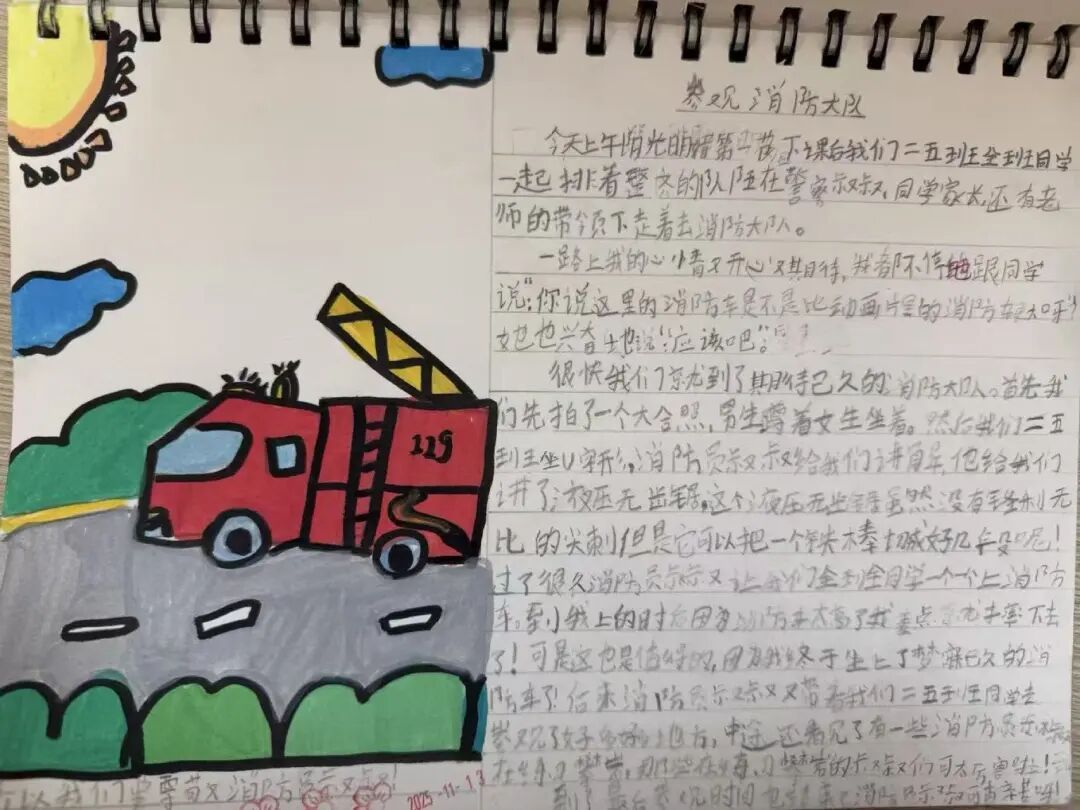 参观消防大队
今天上午阳光明媚第二节下课后我们二五班全班同学
一起排着整齐的队伍在警察叔叔,同学家长还有老
师的带领下走着去消防大队。
一路上我的心情又开心又期待,我都不停地跟同学
说:“你说这里的消防车是不是比动画片里的消防车大呀?”
她也兴奋地说“应该吧”。
很快我们就到了期待已久的消防大队。首先我
们先拍了一个大合照,男生蹲着女生坐着。然后我们二五
班坐U字形,消防员叔叔给我们讲,他给我们
讲了液压无齿锯。这个液压无齿锯虽然没有锋利无
比的尖刺但是它可以把一个铁棒切成好几段呢!
过了很久消防员叔叔又让我们全班全同学一个一个上消防
车。到我上的时候因为消防车太高了我差点就摔下去
了!可是这也是值得的,因为我终于坐上了梦寐已久的消
防车了!后来消防员叔叔又带着我们二五班同学去
参观了好多好地方,中途还看见了有一些消防员叔叔
在练习攀岩,那些在练习攀岩的叔叔们可太厉害啦!
到了最后参观时间也
所以我们要尊敬消防员叔叔!
119
2025-11-13